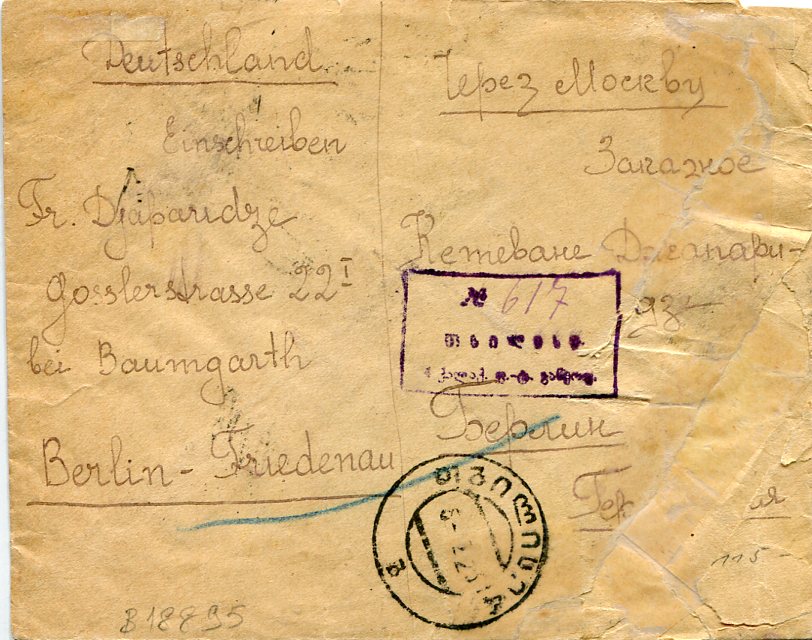 Deutschland
Einschreiben
Fr. Djaparidze
Gosslerstrasse 22 I
bei Baumgarth
Berlin - Friedenau
Через Москву
Заказное
Кетеване Джапари-
дзе
№ 617
თბილისი
Берлин
თბილისი
B18895
115 -